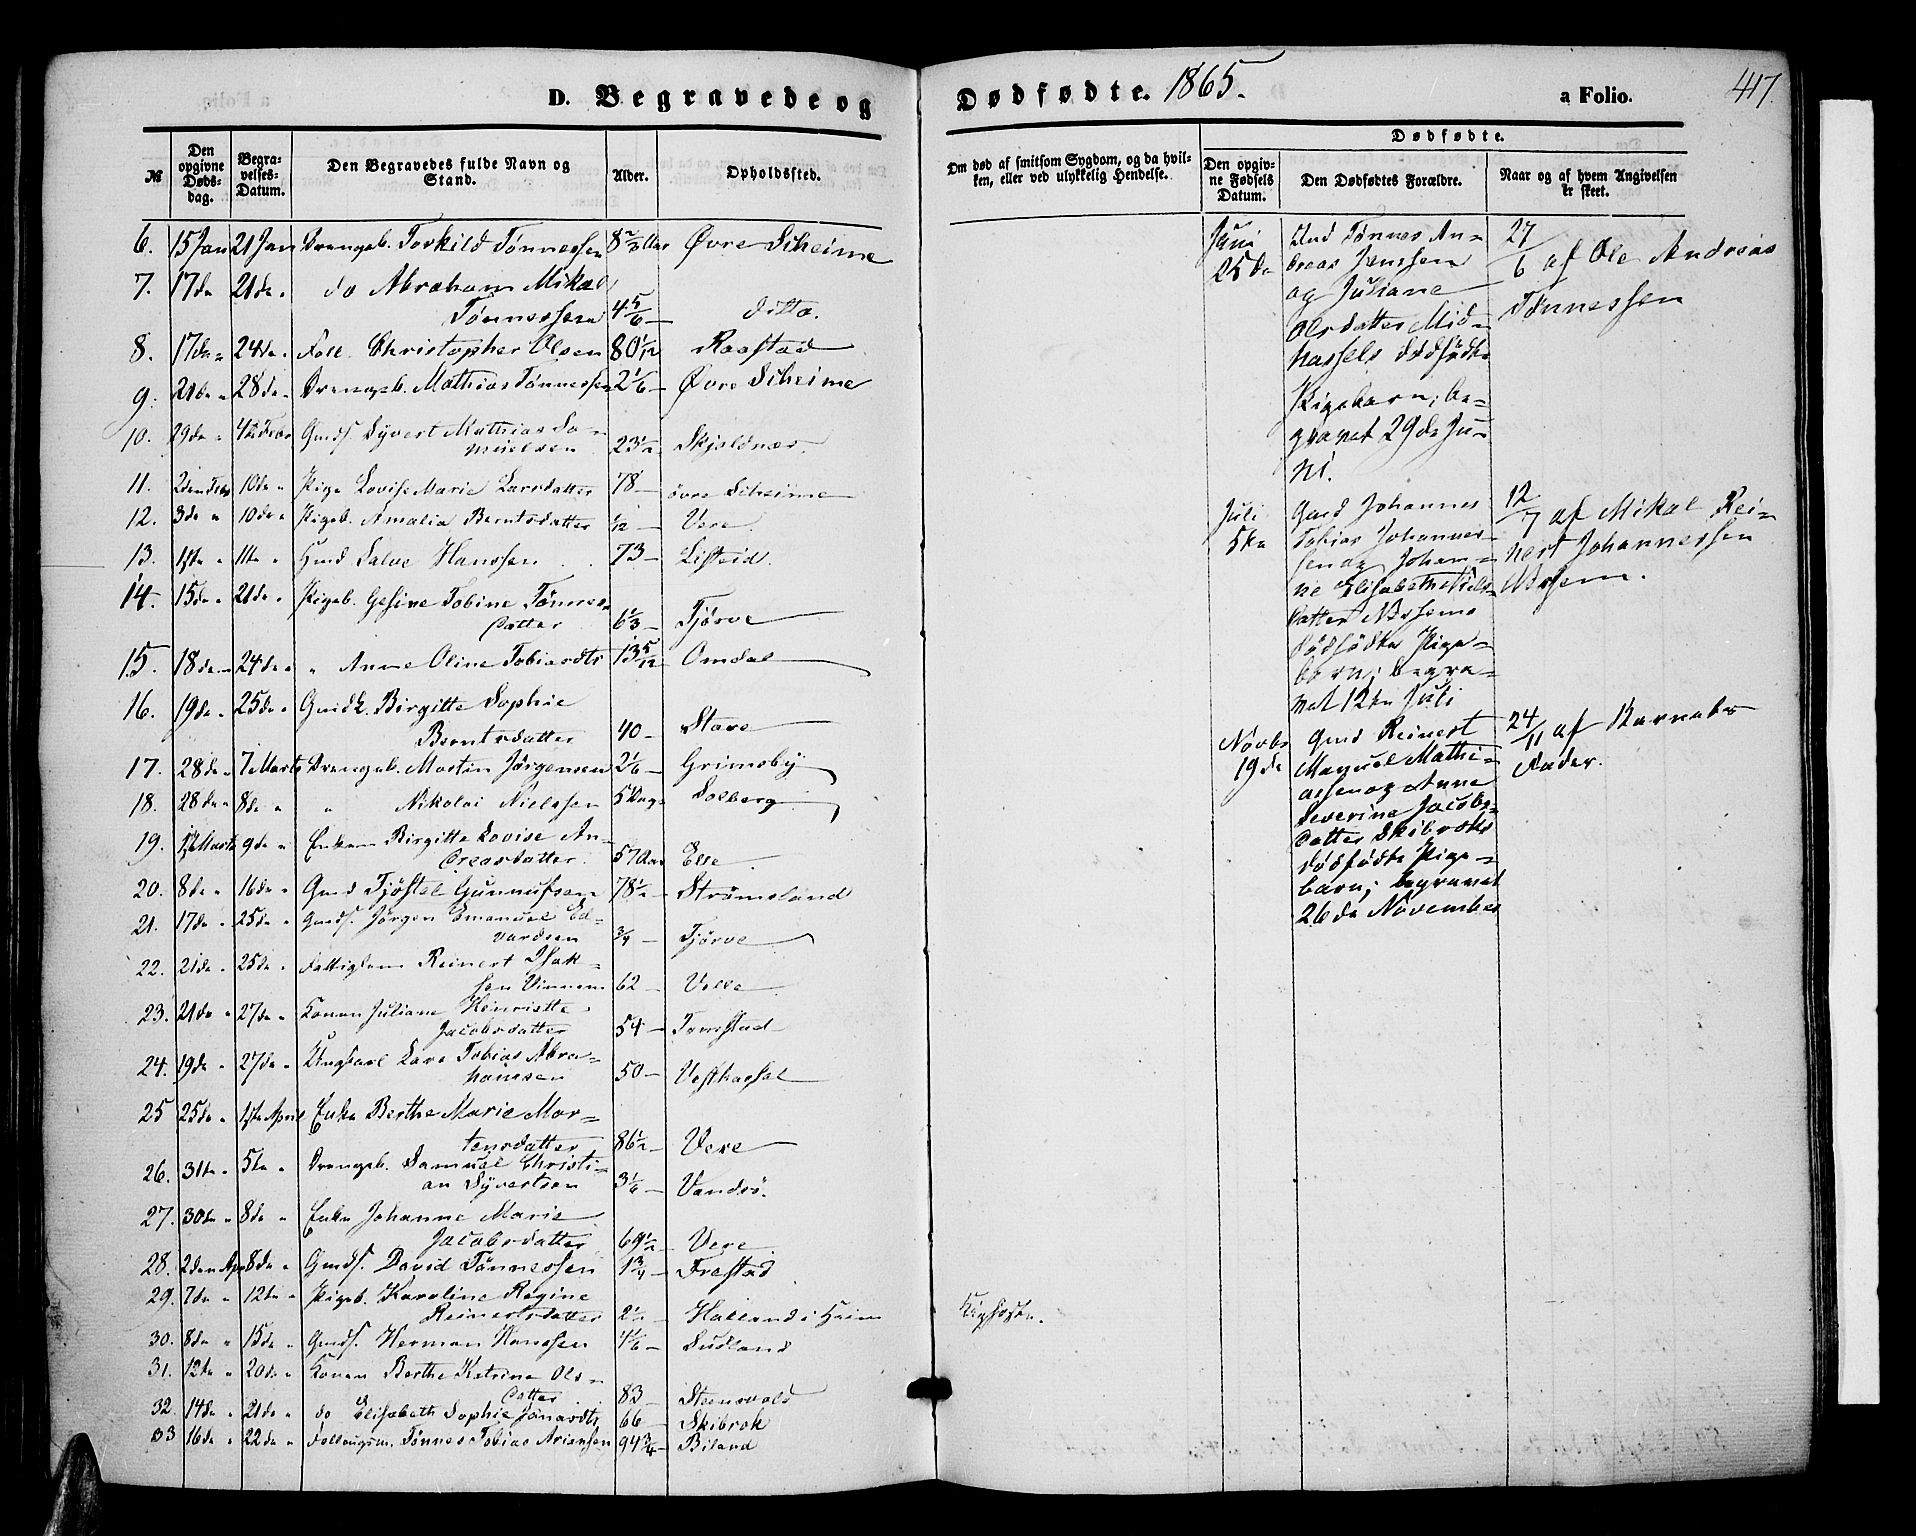 D. Begravede og Dødfødte. 1865.
a Folio. 417.
№
Den opgivne Døds-dag.
Begra-velses-Datum.
Den Begravedes fulde Navn og Stand.
Alder.
Opholdssted.
Om død af smitsom Sygdom, og da hvil-ken, eller ved ulykkelig Hendelse.
Dødfødte.
Den opgiv-ne Fødsels Datum.
Den Dødfødtes Forældre.
Naar og af hvem Angivelsen er skeet.
6. 15 Jan 21 Jan Drengeb. Torkild Tønnessen 8 2/3 Aar Øvre Skeime
7. 17de 21de " do Abraham Mikal
Tønnessen 4 5/6 — ditto.
8. 17de " 24de " Foll. Christopher Olsen 80 1/12 Raastad
9. 21de " 28de " Drengeb. Mathias Tønnessen 2 1/6 — Øvre Skeime
10. 29de " 4de Febr Gmds. Syvert Mathias Sa-
muelsen 23 1/2 — Skjoldnær.
11. 2den Febr 10de " Pige Lovise Marie Larsdatter 78 — øvre Skeime
12. 3de " 10de " Pigeb. Amalia Berntsdatter 1/12 — Vere.
13. 1ste " 11te " Hmd Salve Hanssen 73 — Listeid.
14. 15de " 21de " Pigeb. Gesine Tobine Tønnes-
datter 6 1/3 — Tjørve
15. 18de " 24de " " Anne Oline Tobiasdtr 13 5/12 — Omdal
16. 19de " 25de " Gmdk. Birgitte Sophie
Berntsdatter 40 — Stave
17. 28de " 7 Marts Drengeb. Martin Jørgensen 2 1/6 — Grimsby
18. 28de " 8de " " Nikolai Nielssen 5 Dage Solberg
19. 1ste Marts 9de " Enken Birgitte Lovise An-
dreasdatter 57 Aar Elle
20. 8de " 16de " Gmd Tjøstel Gunnufsen 78 1/2 — Strømsland
21. 17de " 25de " Gmds. Jørgen Emanuel Ed-
vardsen 3/4 — Tjørve
22. 21de " 25de " Fattiglem Reinert Isak-
sen Vinnem 62 — Velle
23. 21de " 27de " Konen Juliane Henriette
Jacobsdatter 54 — Tomstad
24. 19de " 27de " Ungkarl Lars Tobias Abra-
hamsen 50 — Vesthassel
25 25de " 1ste April Enke Berthe Marie Mor-
tensdatter 86 1/2 — Vere
26. 31te " 5te " Drengeb. Samuel Christi-
an Syvertsen 3 1/6 — Vandsø.
27. 30te " 8de " Enke Johanne Marie
Jacobsdatter 69 1/2 — Vere
28. 2den Apr 8de " Gmds. David Tønnessen 1 3/4 — Frestad
29. 7de " 12te " Pigeb. Karoline Regine
Reinertsdatter 2 1/2 — Halland i Heim Kighoste.
30. 8de " 15de " Gmds. Herman Hanssen 4 1/6 — Sudland
31. 12te " 20de " Konen Berthe Katrine Ols-
datter 83 — Steensvold
32. 14de " 21de " do Elisabeth Sophie Jonasdtr 66 — Skibrok
33 16de " 22de " Follaugsm. Tønnes Tobias Ariansen 94 3/4 — Biland
Juni 25de
Hmd Tønnes An-
dreas Jenssen
og Juliane
Olsdatter Mid-
hassels dødfødte
Pigebarn; be-
gravet 29de Ju-
ni.
27/6 af Ole Andreas
Tønnessen
Juli 5te
Gmd Johannes
Tobias Johannes-
sen og Johan-
ne Elisabeth Niels-
datter
dødfødte Pige-
barn; begra-
vet 12te Juli
12/7 af Mikal Rei-
nert Johannessen
Novbr 19de
Gmd Reinert
Manuel Mathi-
assen og Anne
Severine Jacobs-
datter Skibroks
dødfødte Pige-
barn; begravet
26de November
24/11 af Barnets
Fader.